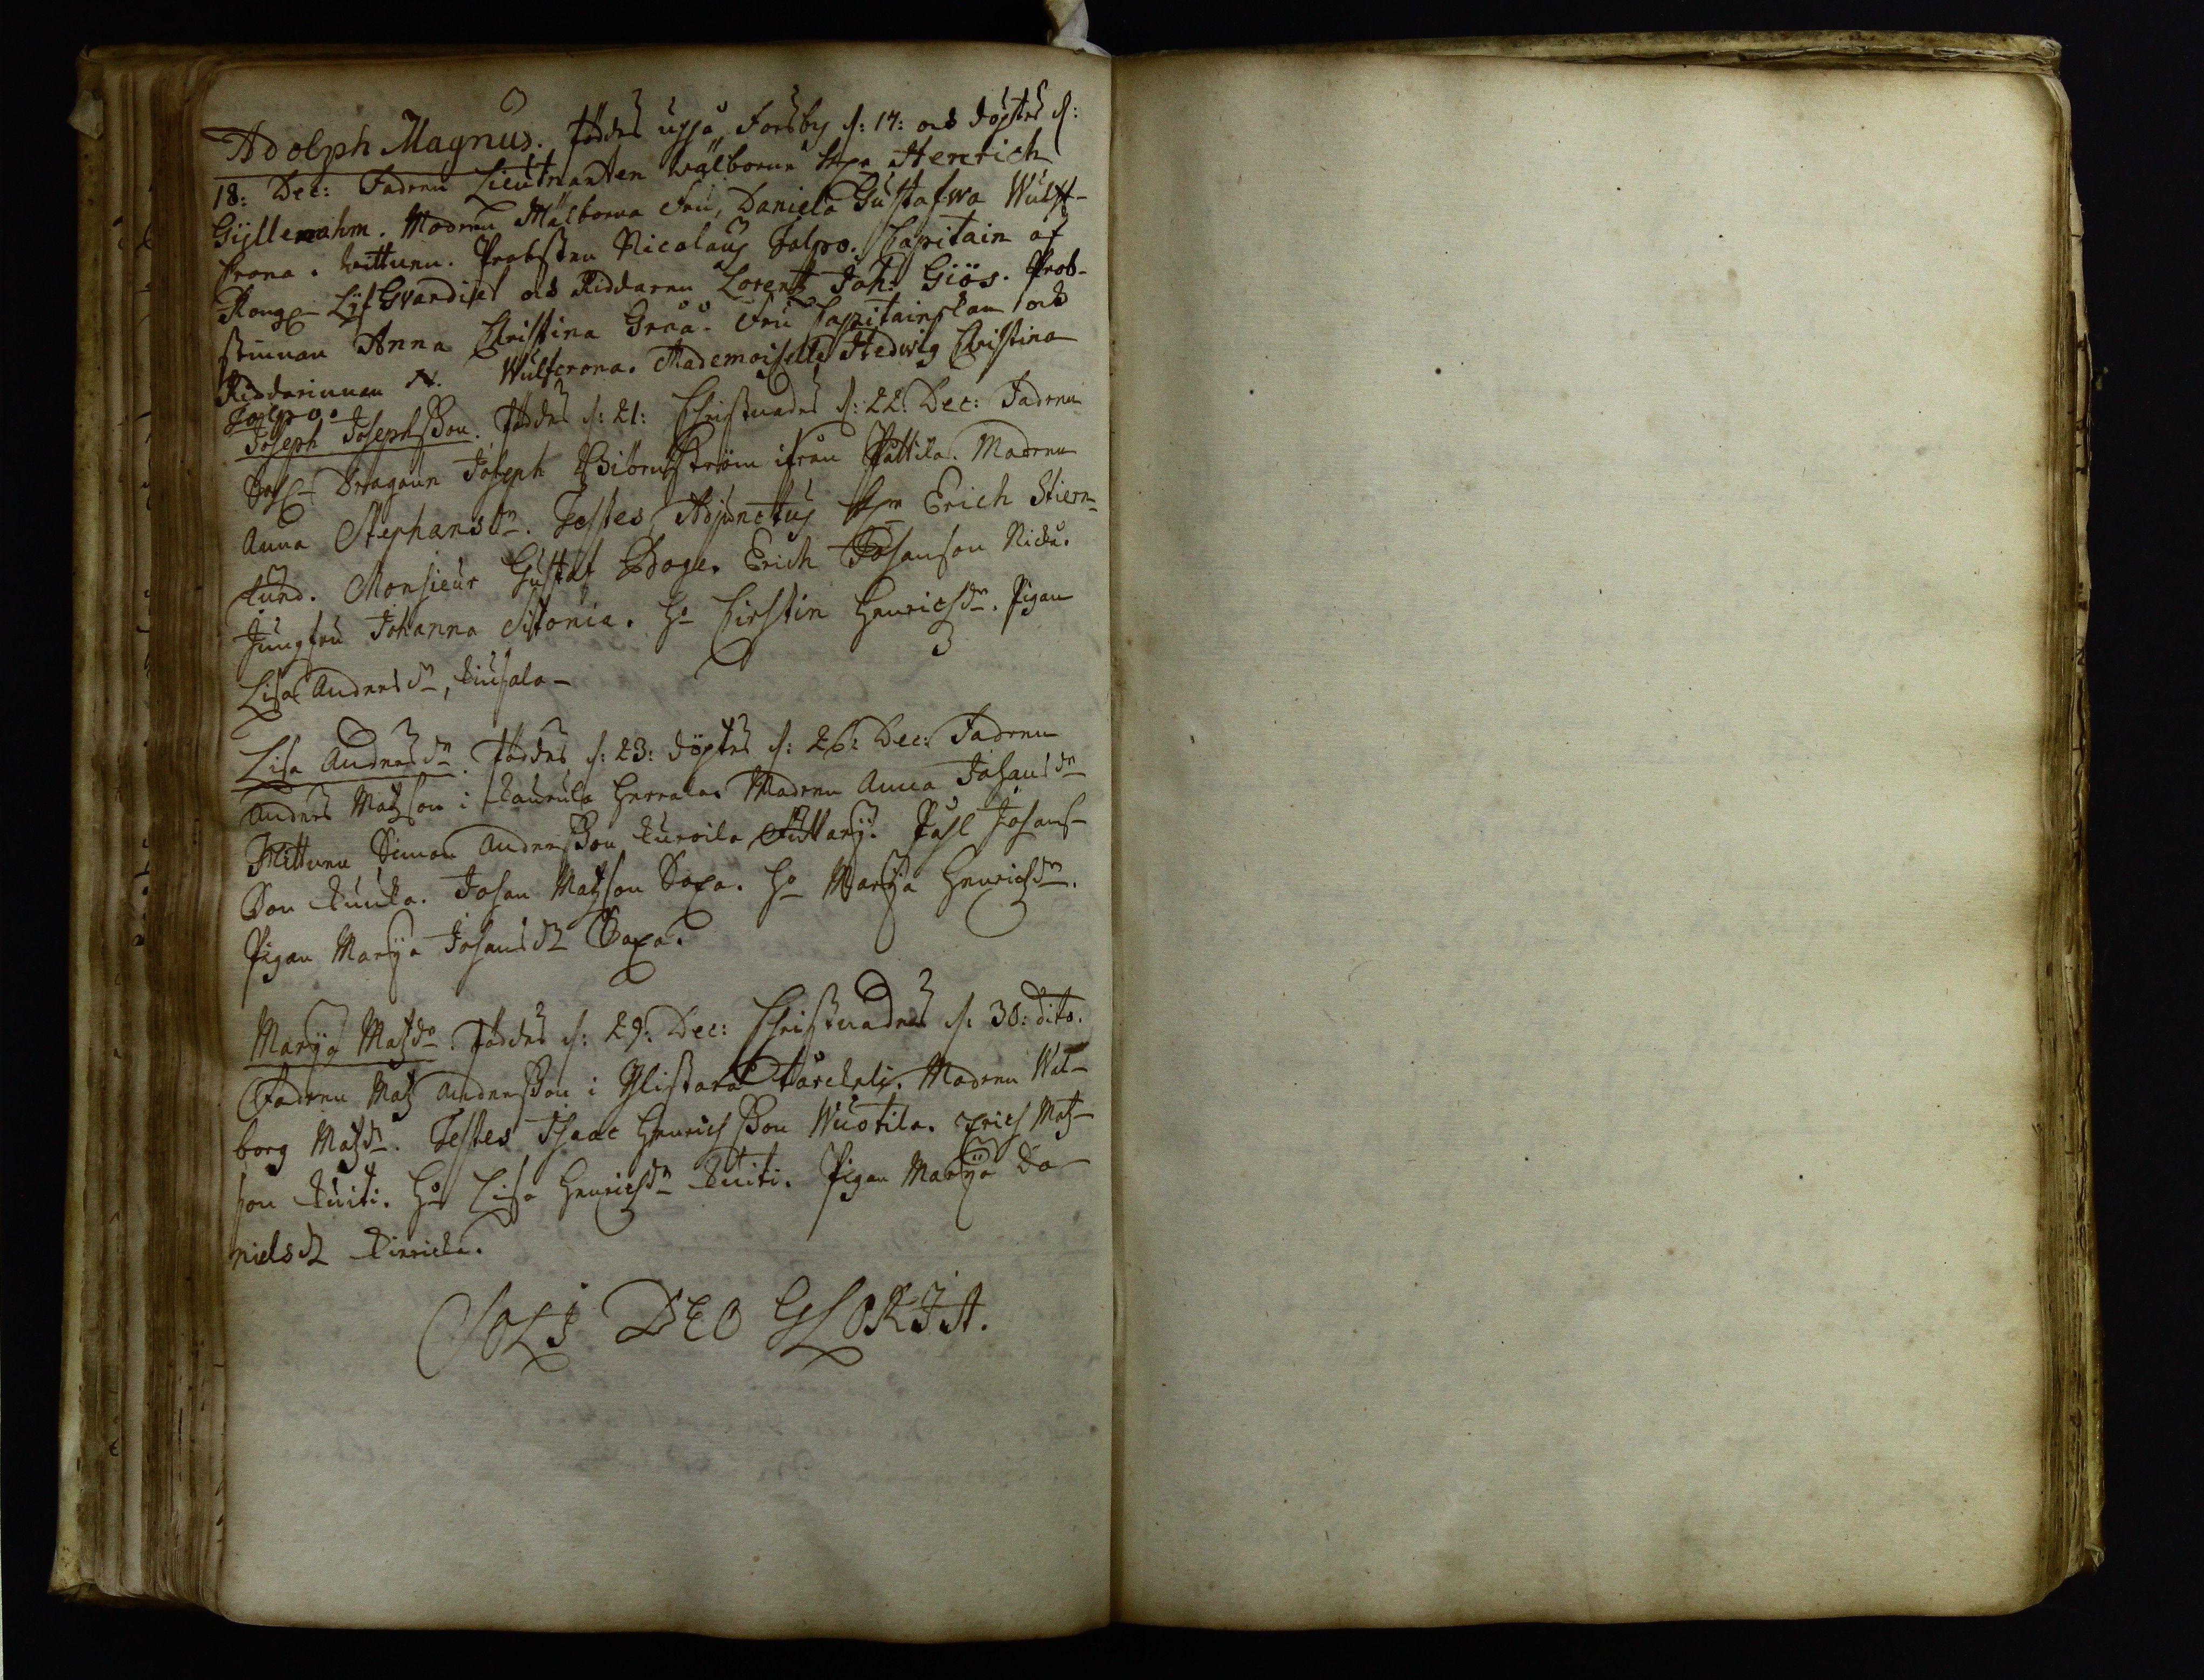 Adolph Magnus. föddes uppå Forsby d: 17: och döptes d:
18: Dec: Fadren Lieutnanten wälborne H:r Henrich
Gyllenahm. Modren Wälborna Fru, Daniela Gustafwa Wulf-
crona. wittnen. Probsten Nicolaus Jalpo. Capitain af
Kongl. Lif Gvardiet och Riddaren Lorentz Joh: Giös. Prob-
stinnan Anna Christina Graå. Fru Capitainskan och
Riddarinnan N. Wulfcrona. Mademoiselle Hedwig Christina
Jalpo.
Joseph Josephsson. föddes d: 21: Christnades d: 22: Dec: Fadren
Dragoun Joseph ifrån Pattila. Modren
Anna Stephansdr. Testes, Adjunctus H:r Erich Stiern-
lund. Monsieur Gustaf Boge. Erich Johanson Nicku.
Jungfru Johanna Sitonia. H:o Cirstin Henrichsdr. Pigan
Lisa Andersdr, Kiusala-
Lisa Andersdr. föddes d: 23: döptes d: 26: Dec: Fadren
Anders Matzson i Kaurula Herrala. Modren Anna Johansdr
Wittnen Simon Andersson Kuroila Påhl Johans-
Son Kuuka. Johan Matzson Saxa. H:o Marja Henrichsdr.
Pigan Marja Johansdr Saxa.
Marja Matzdr. föddes d: 29: Dec: Christnades d: 30: dito.
Fadren Matz Andersson i Ylistaro Modren Wal-
borg Matzdr. Testes, Isaac Henrichsson Wuotila. Erich Matz-
son Kuiti. H:o Lisa Henrichsdr Kuiti. Pigan Marja Da-
nielsdr
SOLI DEO GLORIA.